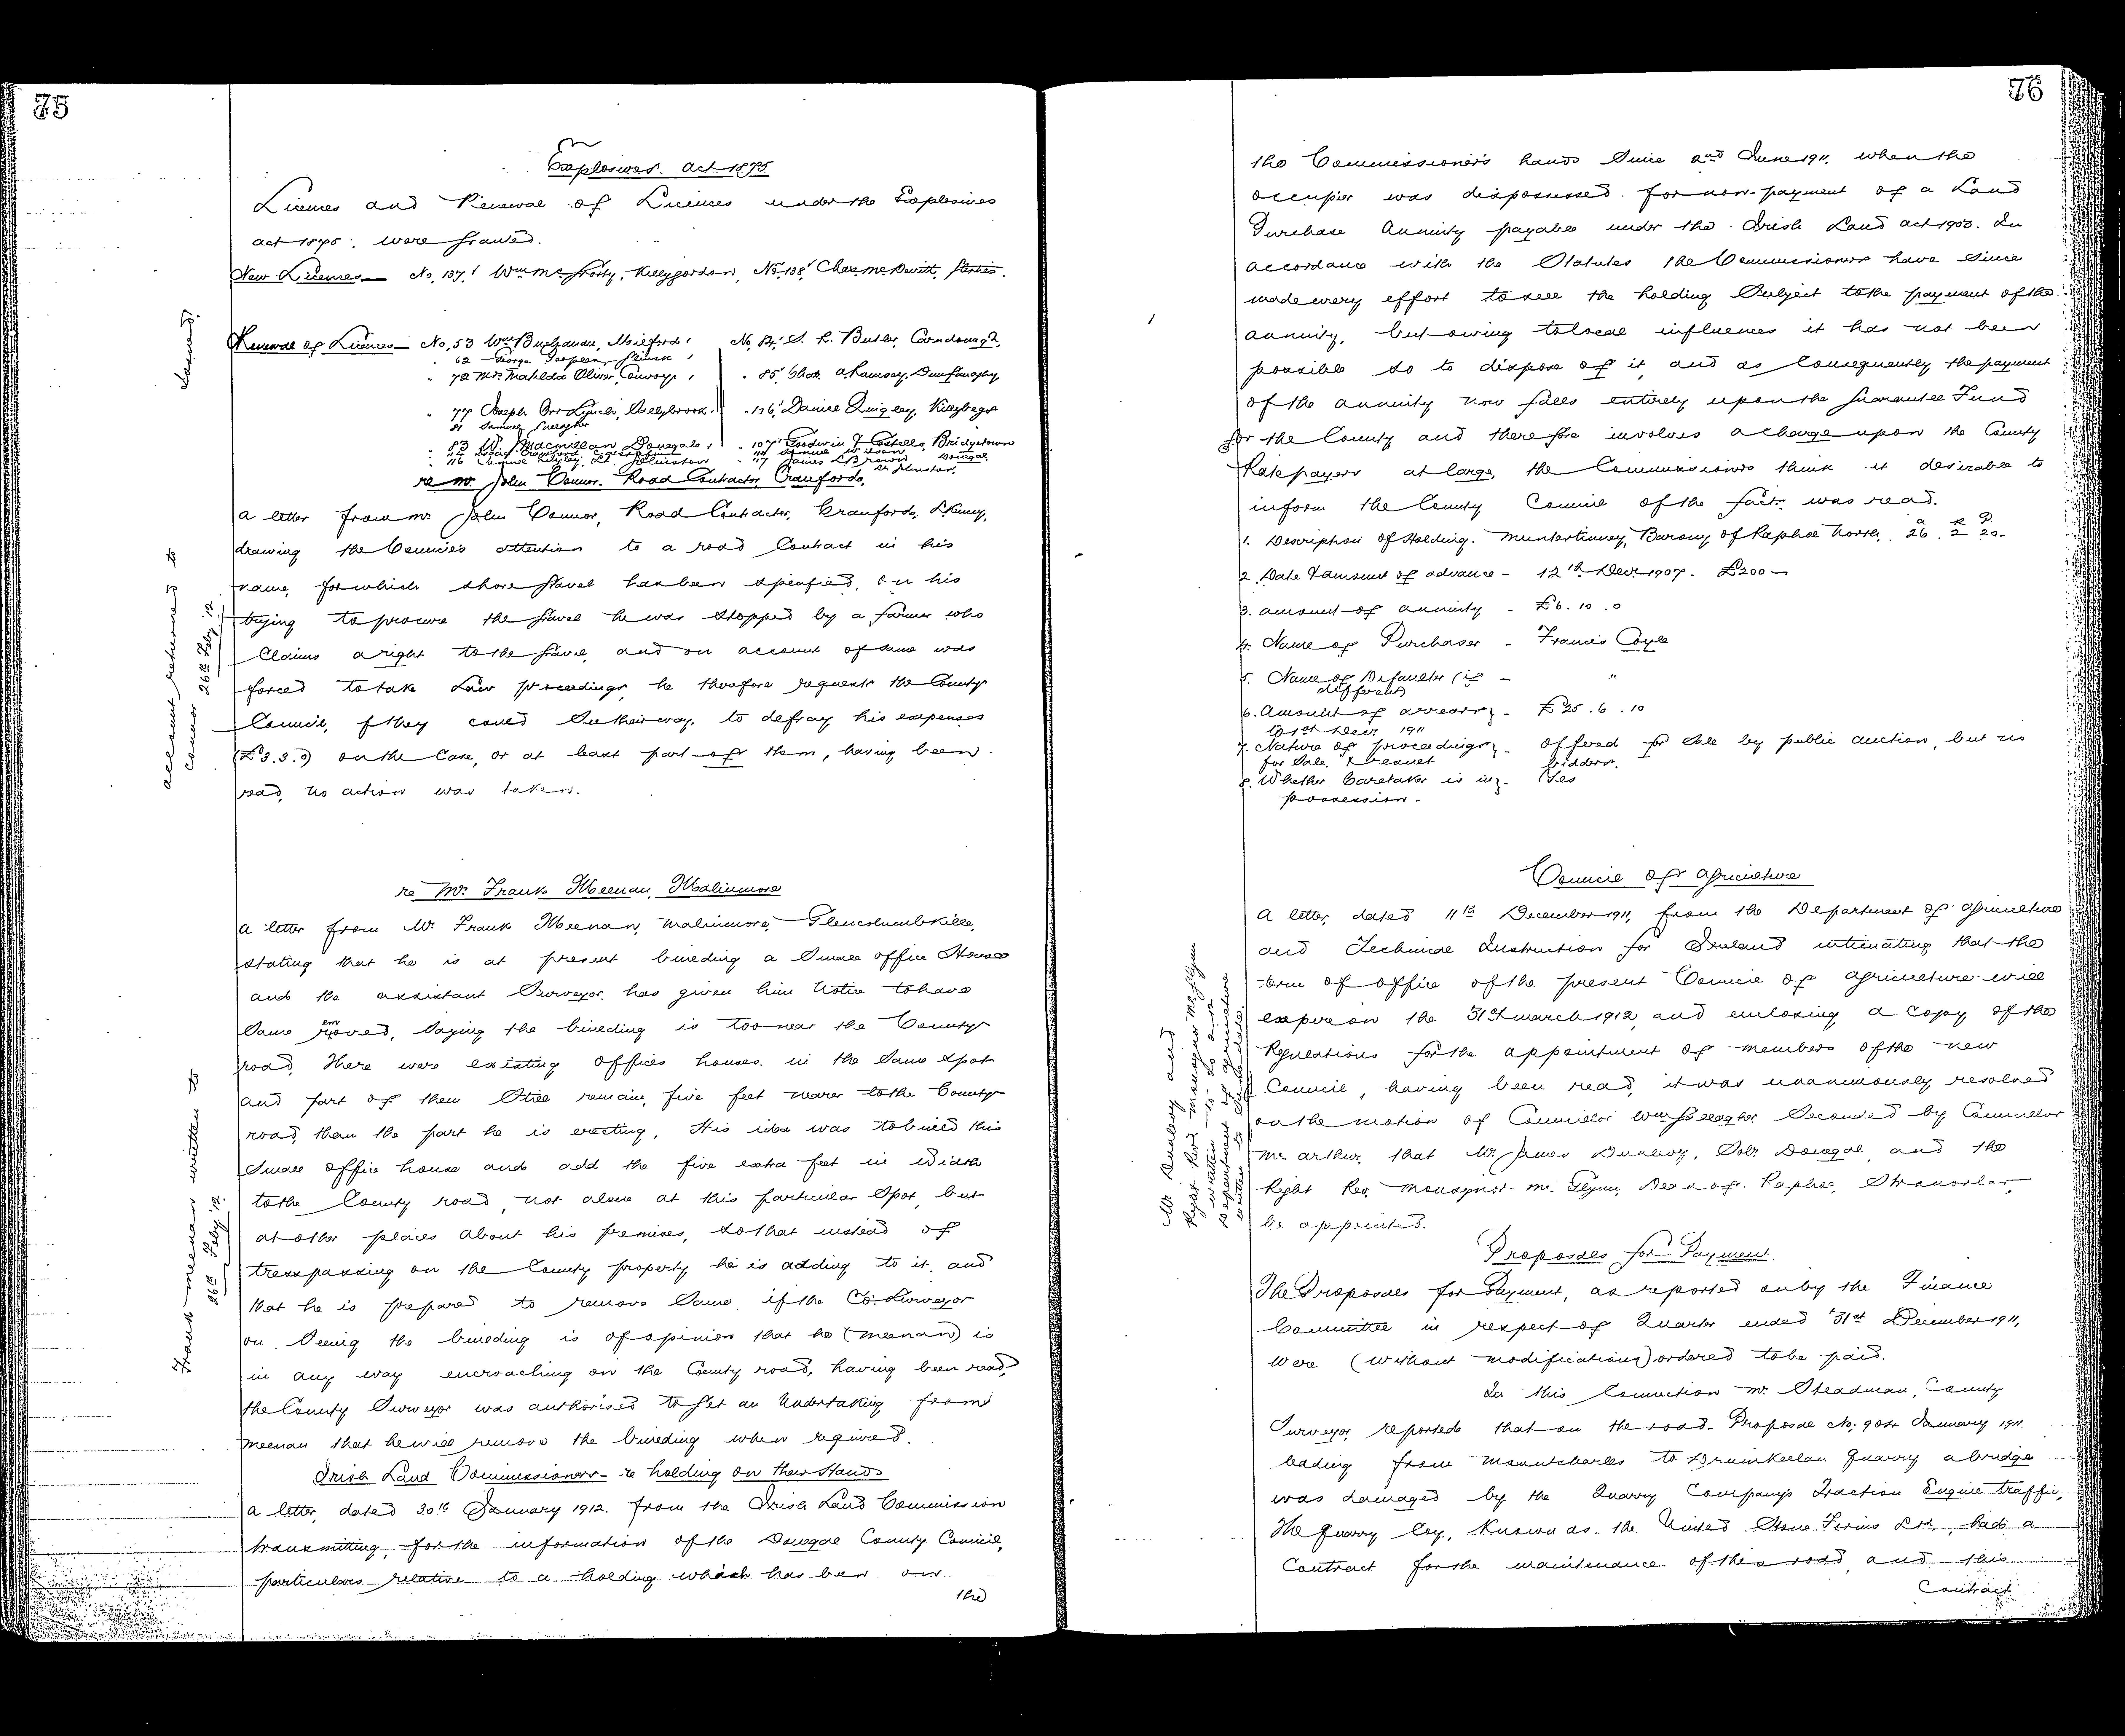 75
Explosives Act 1875
Licences and Renewal of Licences under the Explosives
Act 1875, were granted.
New Licences — No. 137, Wm McGroty, Killygordon, No. 138, Chas. McDevitt, Glenties.
Issued.
Renewal of Licences — No. 53 Wm Buchanan, Milford, No. 84, S. R. Butler, Carndonagh,
" 62 George
" 72 Mrs Matilda Oliver, Convoy, " 85, Chas. A. Ramsay, Dunfanaghy
" 77 Joseph Orr Lynch, Sallybrook. " 136, Daniel Quigley, Killybegs
81 Samuel Gallagher
" 83 W. Macmillan Donegal, " 107, Goodwin & Costello, Bridgetown
" 112 Isaac Crawford, " 110 Samuel Wilson Donegal
" 116 Samuel St. Johnston " 117 James L Brown St. Johnston.
re Mr. John Connor. Road Contractor, Cranford.
A letter from Mr John Connor, Road Contractor, Cranford, L'kenny,
drawing the Council's attention to a road Contract in his
name, for which shore gravel has been specified. On his
trying to procure the gravel he was stopped by a farmer who
Claims a right to the gravel, and on account of same was
forced to take Law proceedings, he therefore requests the County
Council, if they could see their way, to defray his expenses
(£3.3.0) on the Case, or at least part of them, having been
read, no action was taken.
account returned to
Connor 26th Feby '12
re Mr. Frank Meenan, Malinmore
A letter from Mr. Frank Meenan, Malinmore, Glencolumbkille,
stating that he is at present building a Small office House
and the assistant Surveyor has given him Notice to have
Same removed, Saying the building is too near the County
road. There were existing offices houses in the Same spot
and part of them Still remain, five feet nearer to the County
road, than the part he is erecting. His idea was to build this
Small office house and add the five extra feet in Width
to the County road, not alone at this particular Spot, but
at other places about his premises, so that instead of
tresspassing on the County property he is adding to it, and
that he is prepared to remove Same, if the Co. Surveyor
on Seeing the building is of opinion that he (Meenan) is
in any way encroaching on the County road, having been read,
the County Surveyor was authorised to get an Undertaking from
Meenan that he will remove the building when required.
Frank Meenan written to
26th Feby '12.
Irish Land Commissioners - re holding on their Hands
A letter, dated 30th January 1912, from the Irish Land Commission
transmitting, for the information of the Donegal County Council,
particulars relative to a holding which has been on
the
76
the Commissioners hands Since 2nd June 1911, when the
occupier was dispossessed for non-payment of a Land
Purchase Annuity payable under the Irish Land Act 1903. In
accordance with the Statutes the Commissioners have Since
made every effort to sell the holding Subject to the payment of the
annuity, but owing to local influences it has not been
possible so to dispose of it, and as Consequently the payment
of the annuity now falls entirely upon the Guarantee Fund
for the County and therefore involves a charge upon the County
Ratepayers at large, the Commissioners think it desirable to
inform the County Council of the fact, was read.
1. Description of Holding. Munkertinney, Barony of Raphoe North. 26A 2R 20P.
2. Date & amount of advance - 12th Decr 1907. £200 -
3. Amount of annuity - £6.10.0
4. Name of Purchaser - Francis Coyle
5. Name of Defaulter (if different) - "
6. Amount of arrears to 1st Decr 1911 - £25.6.10
7. Nature of proceedings for Sale, & result - offered for Sale by public auction, but no bidders.
8. Whether Caretaker is in possession. - Yes
Council of Agriculture
A letter, dated 11th December 1911, from the Department of Agriculture
and Technical Instruction for Ireland intimating that the
term of office of the present Council of Agriculture will
expire on the 31st March 1912, and enclosing a Copy of the
Regulations for the appointment of members of the new
Council, having been read, it was unanimously resolved
on the motion of Councillor Wm Gallagher Seconded by Councillor
McArthur, that Mr. James Dunlevy, Solr. Donegal, and the
Right Rev. Monsignor McGlynn, Dean of Raphoe, Stranorlar,
be appointed.
Mr Dunlevy and
Right Revd. Monsignor McGlynn
written to
Department of Agriculture
written to
Proposals for Payment.
The Proposals for Payment, as reported on by the Finance
Committee in respect of Quarter ended 31st December 1911,
were (without modifications) ordered to be paid.
In this Connection Mr. Steadman, County
Surveyor, reported that on the road - Proposal No. 904 January 1911
leading from Mountcharles to Drumkeelan Quarry a bridge
was damaged by the Quarry Company's Traction Engine traffic.
The Quarry Coy., Known as the United Stone Firms Ltd., had a
Contract for the maintenance of the road, and this
Contract